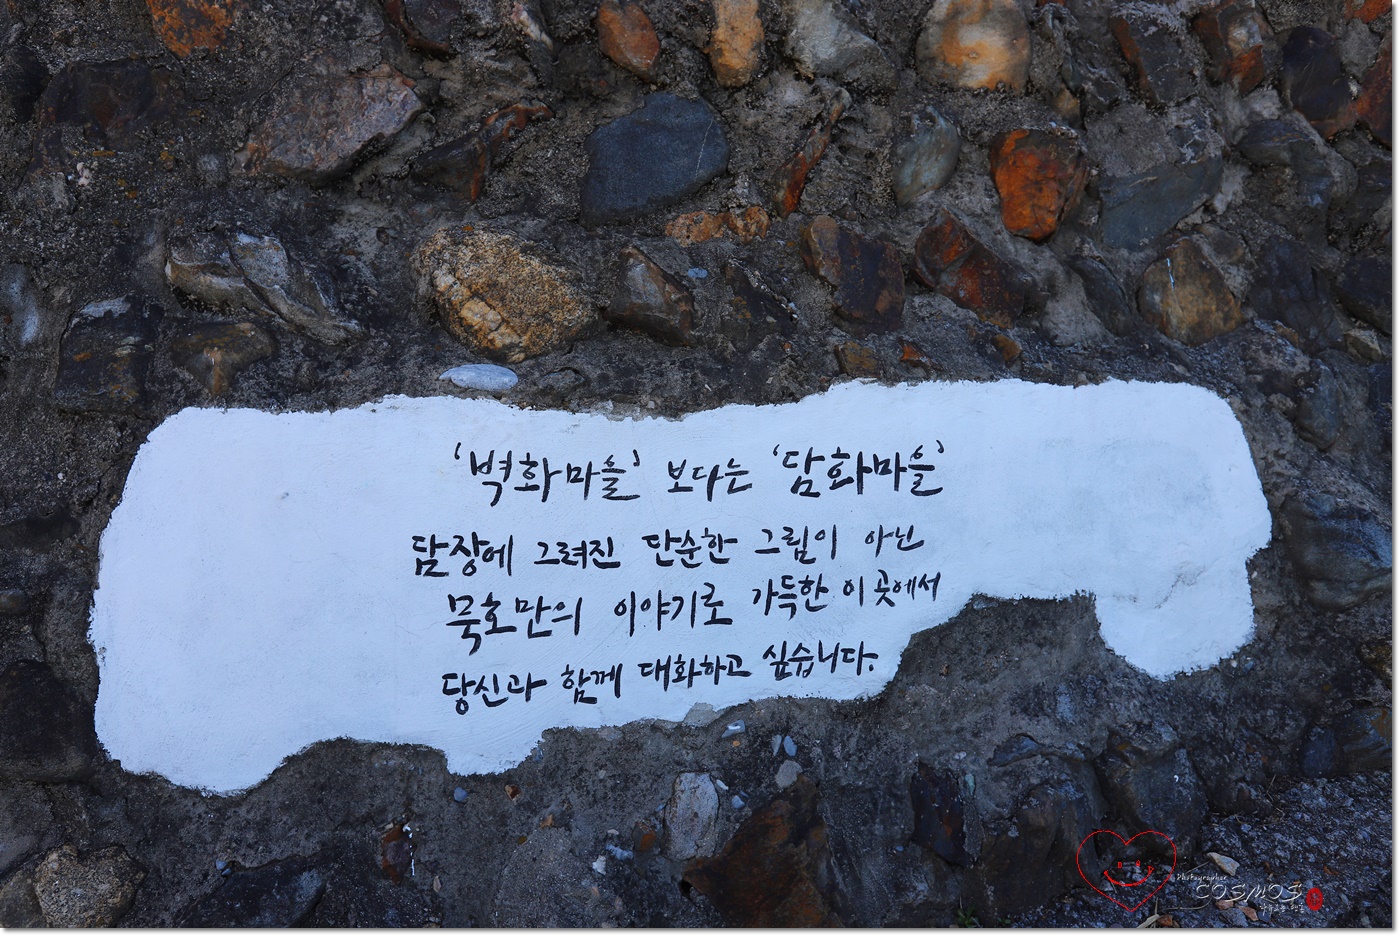 '벽화마을' 보다는 '담화마을'
담장에 그려진 단순한 그림이 아닌
묵호만의 이야기로 가득한 이 곳에서
당신과 함께 대화하고 싶습니다.
Photographer
COSMOS